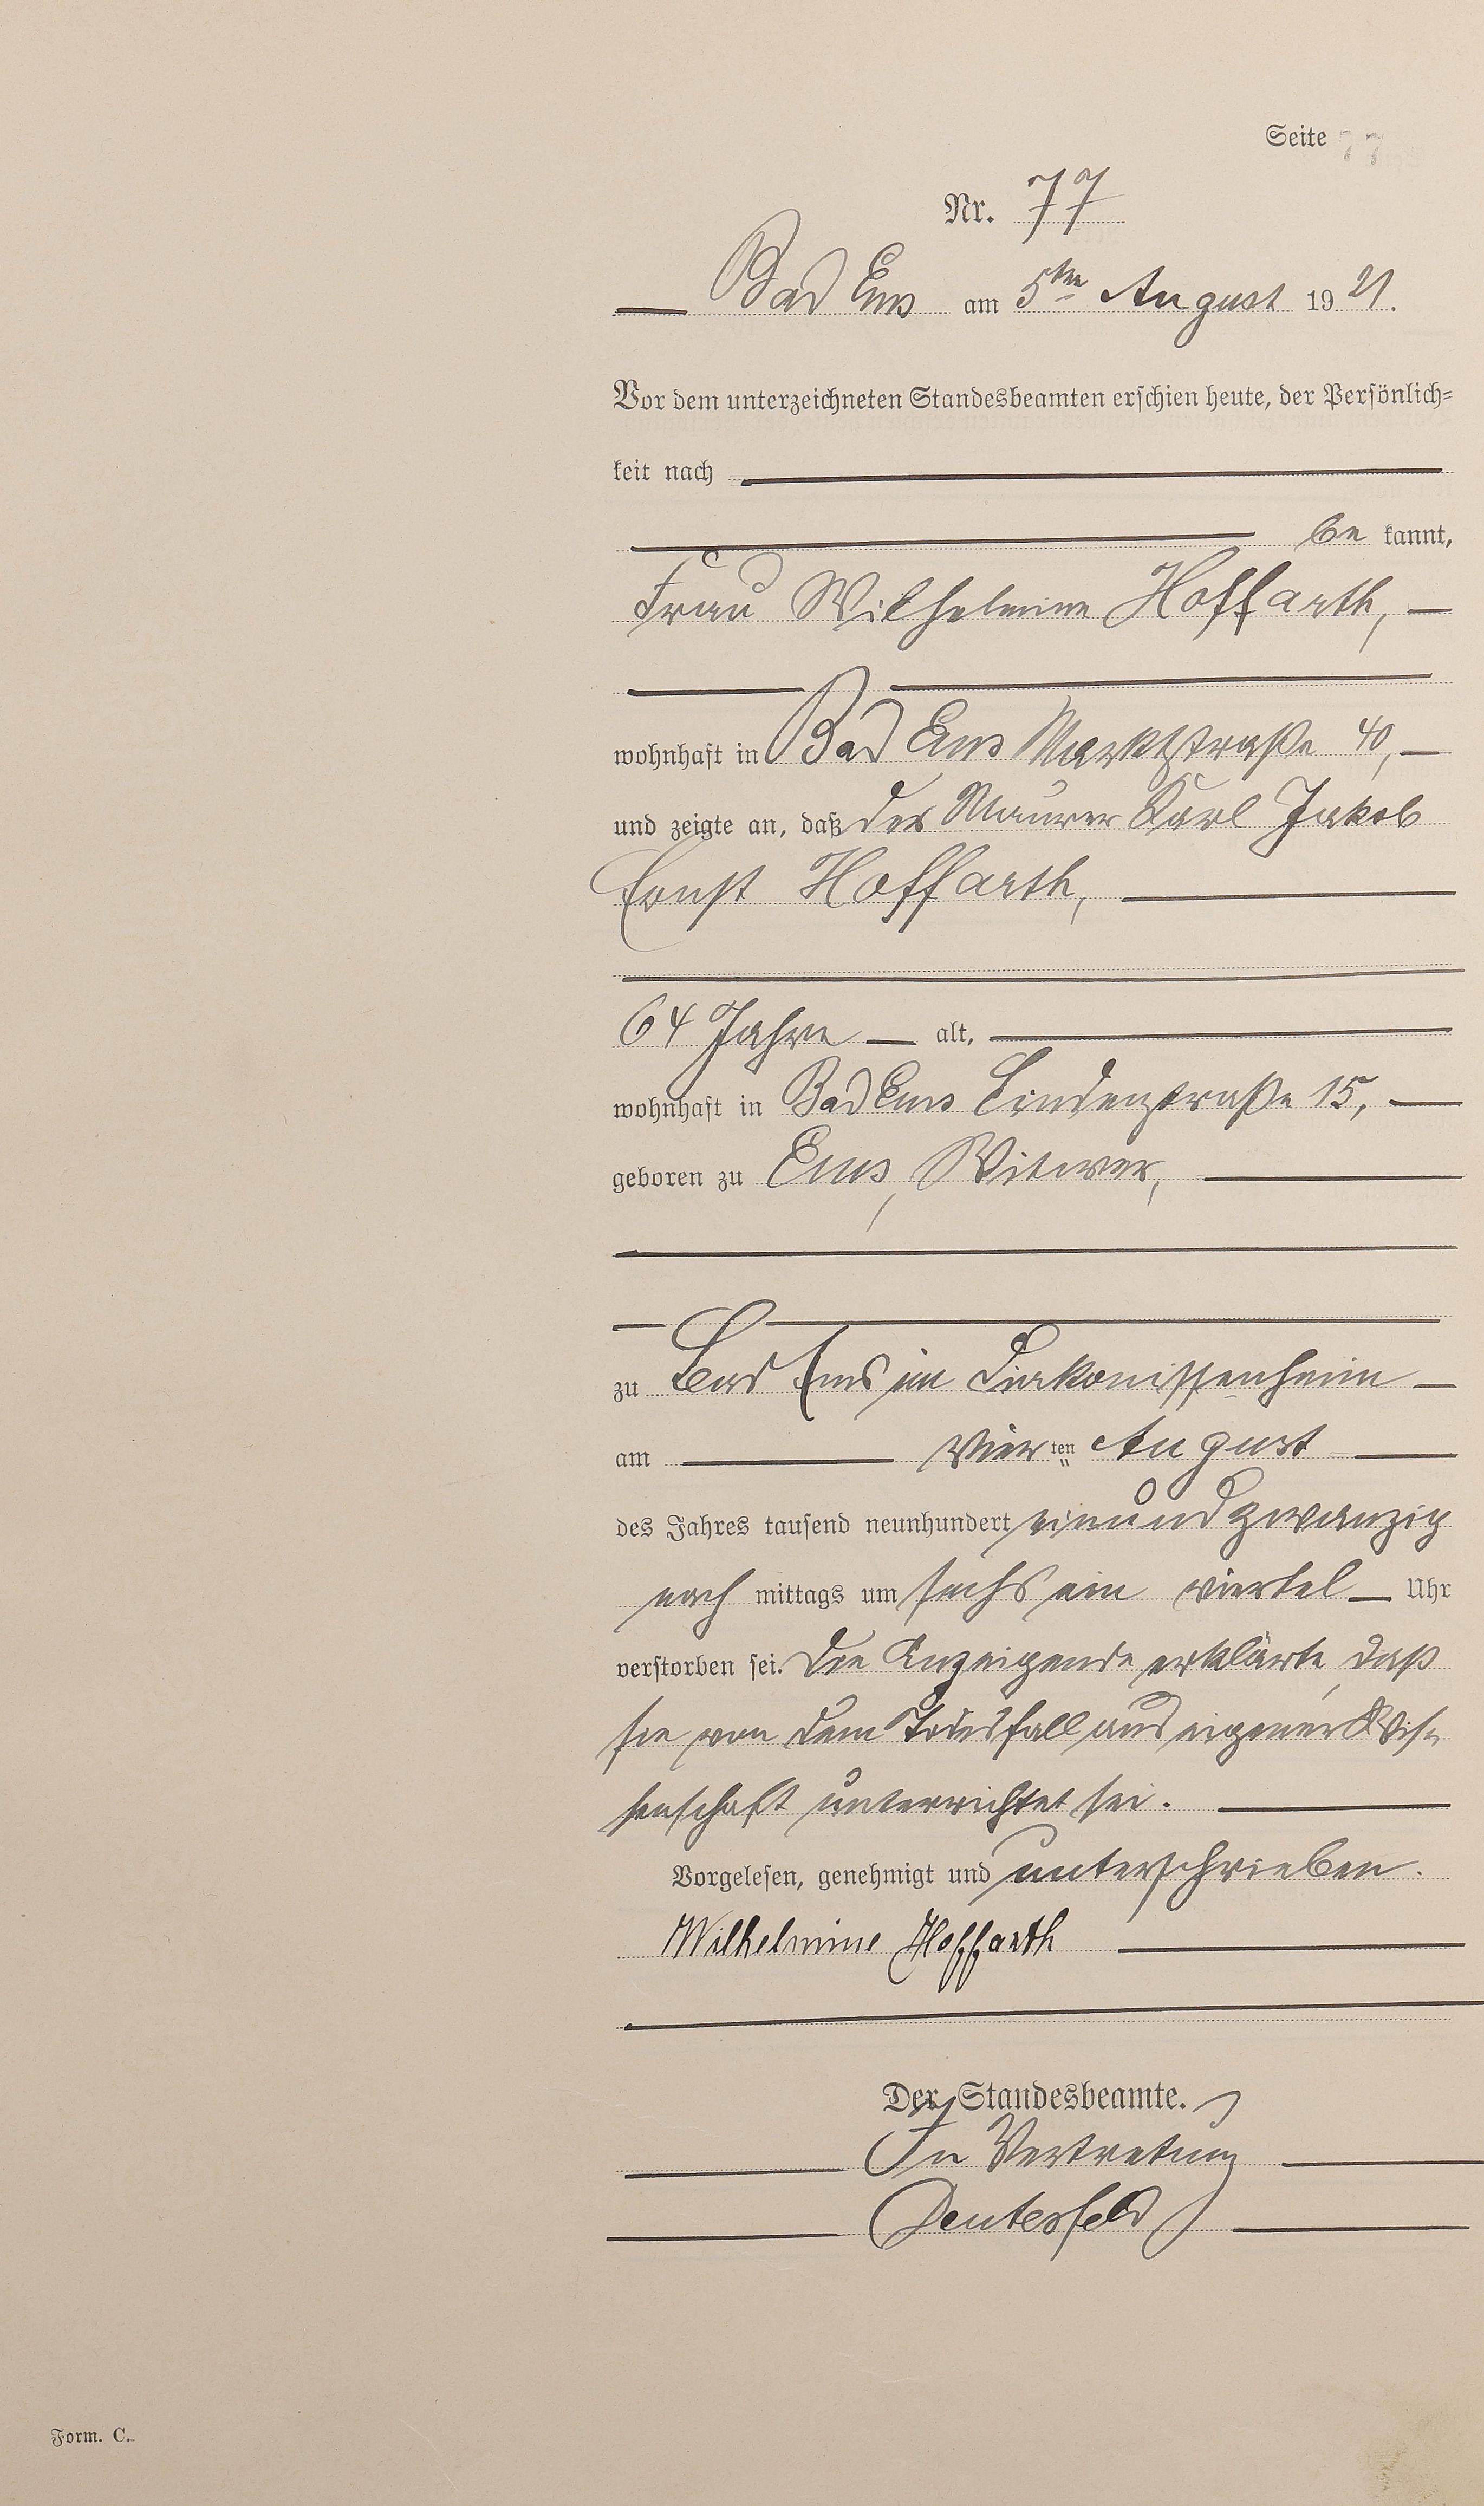 Seite 77
Nr. 77
Bad Ems am 5ten August 19 21.
Vor dem unterzeichneten Standesbeamten erschien heute, der Persönlich-
keit nach
be kannt,
Frau Wilhelmine Hoffarth,
wohnhaft in Bad Ems Marktstraße 40,
und zeigte an, daß der Maurer Karl Jakob
Ernst Hoffarth,
64 Jahre alt,
wohnhaft in Bad Ems Lindenstraße 15,
geboren zu Ems, Witwer,
zu Bad Ems im Diakonissenheim
am vier ten August
des Jahres tausend neunhundert einundzwanzig
nach mittags um sechs ein viertel Uhr
verstorben sei. Die Anzeigende erklärte, daß
sie von dem Todesfall aus eigener Wis-
senschaft unterrichtet sei.
Vorgelesen, genehmigt und unterschrieben.
Wilhelmine Hoffarth
Der Standesbeamte.
In Vertretung
Form. C.